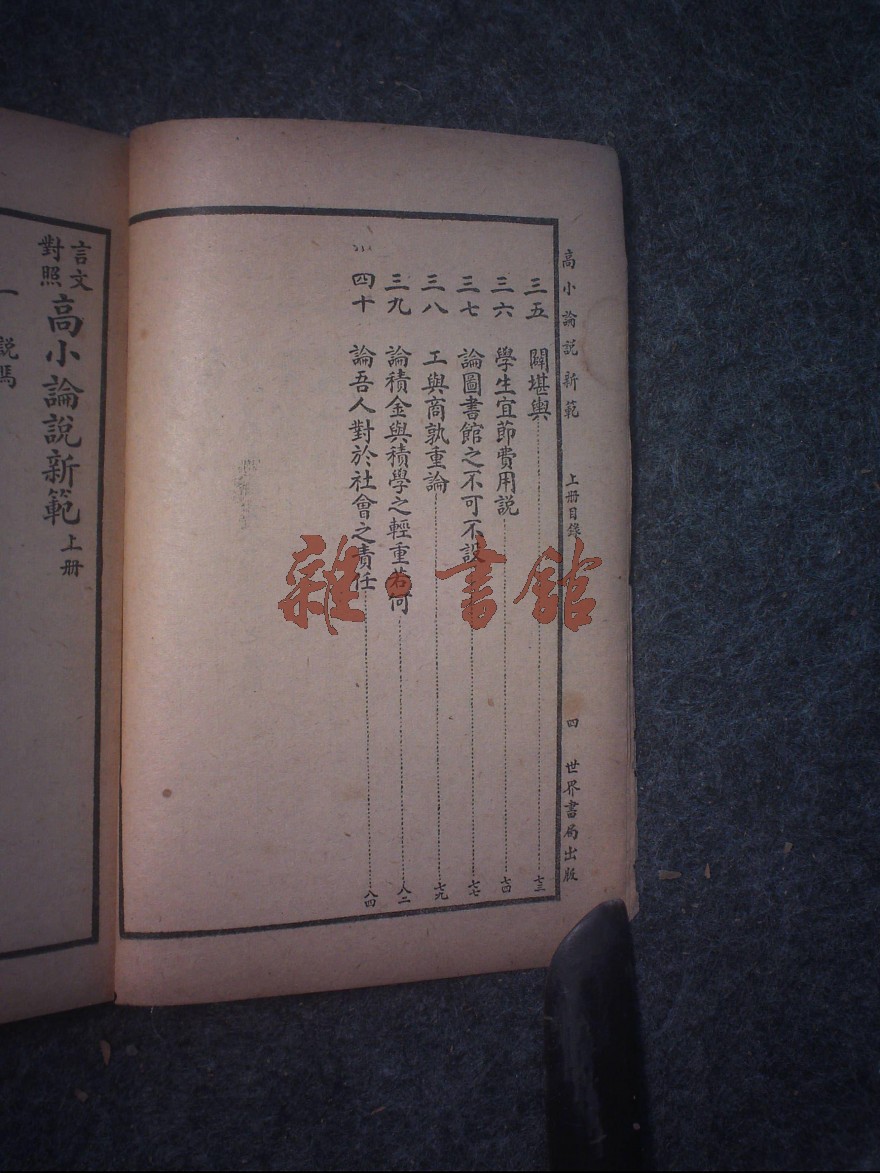 高小論説新範 上册目錄 四 世界書局出版
三五 闢堪輿 七三
三六 學生宜節費用説 七四
三七 論圖書館之不可不設 七七
三八 工與商孰重論 七九
三九 論積金與積學之輕重若何 八二
四十 論吾人對於社會之責任 八四
言文對照 高小論説新範 上册
一 説馬
雜·書館